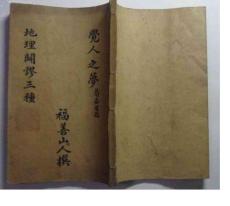 覺人之夢
地理闢謬三種
福善山人撰